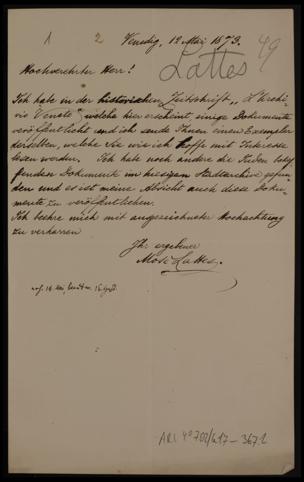 1 2 Venedig, 12 Mai 1873.
49
Lattes
Hochverehrter Herr!
Ich habe in der historischen Zeitschrift „L'Archi-
vio Veneto", welche hier erscheint, einige Dokumente
veröffentlicht und ich sende Ihnen einen Exemplar
derselben, welche Sie wie ich hoffe mit Interesse
lesen werden. Ich habe noch andere die Juden betref-
fenden Dokumente im hiesigen Stadtarchive gefun-
den und es ist meine Absicht auch diese Doku-
mente zu veröffentlichen.
Ich beehre mich mit ausgezeichneter Hochachtung
zu verharren
Ihr ergebener
Mosè Lattes
16 Mai,
AR 4° 702/617-367.2